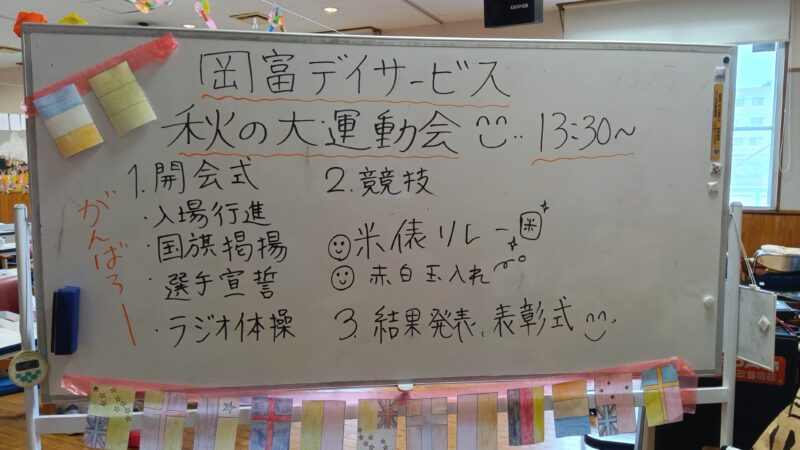 岡富デイサービス
秋の大運動会 13:30～
1.開会式
・入場行進
・国旗掲揚
・選手宣誓
・ラジオ体操
2.競技
米俵リレー 米
赤白玉入れ
3.結果発表、表彰式
がんばろー